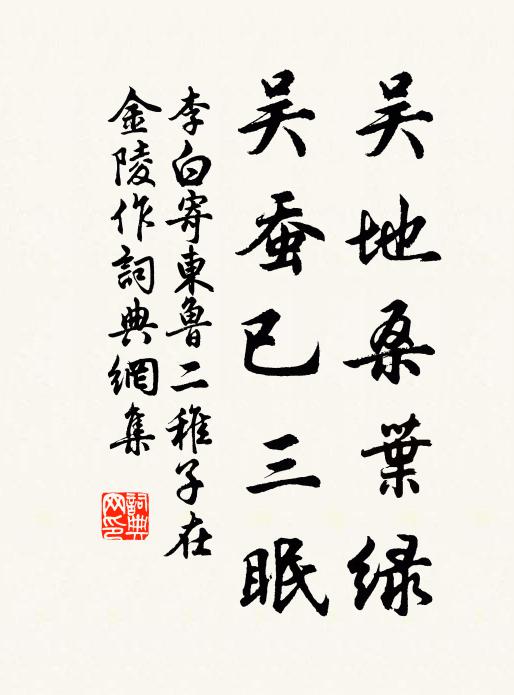 吴地桑葉緑
吴蚕已三眠
李白寄東魯二稚子在
金陵作詞典網集
詞典网印